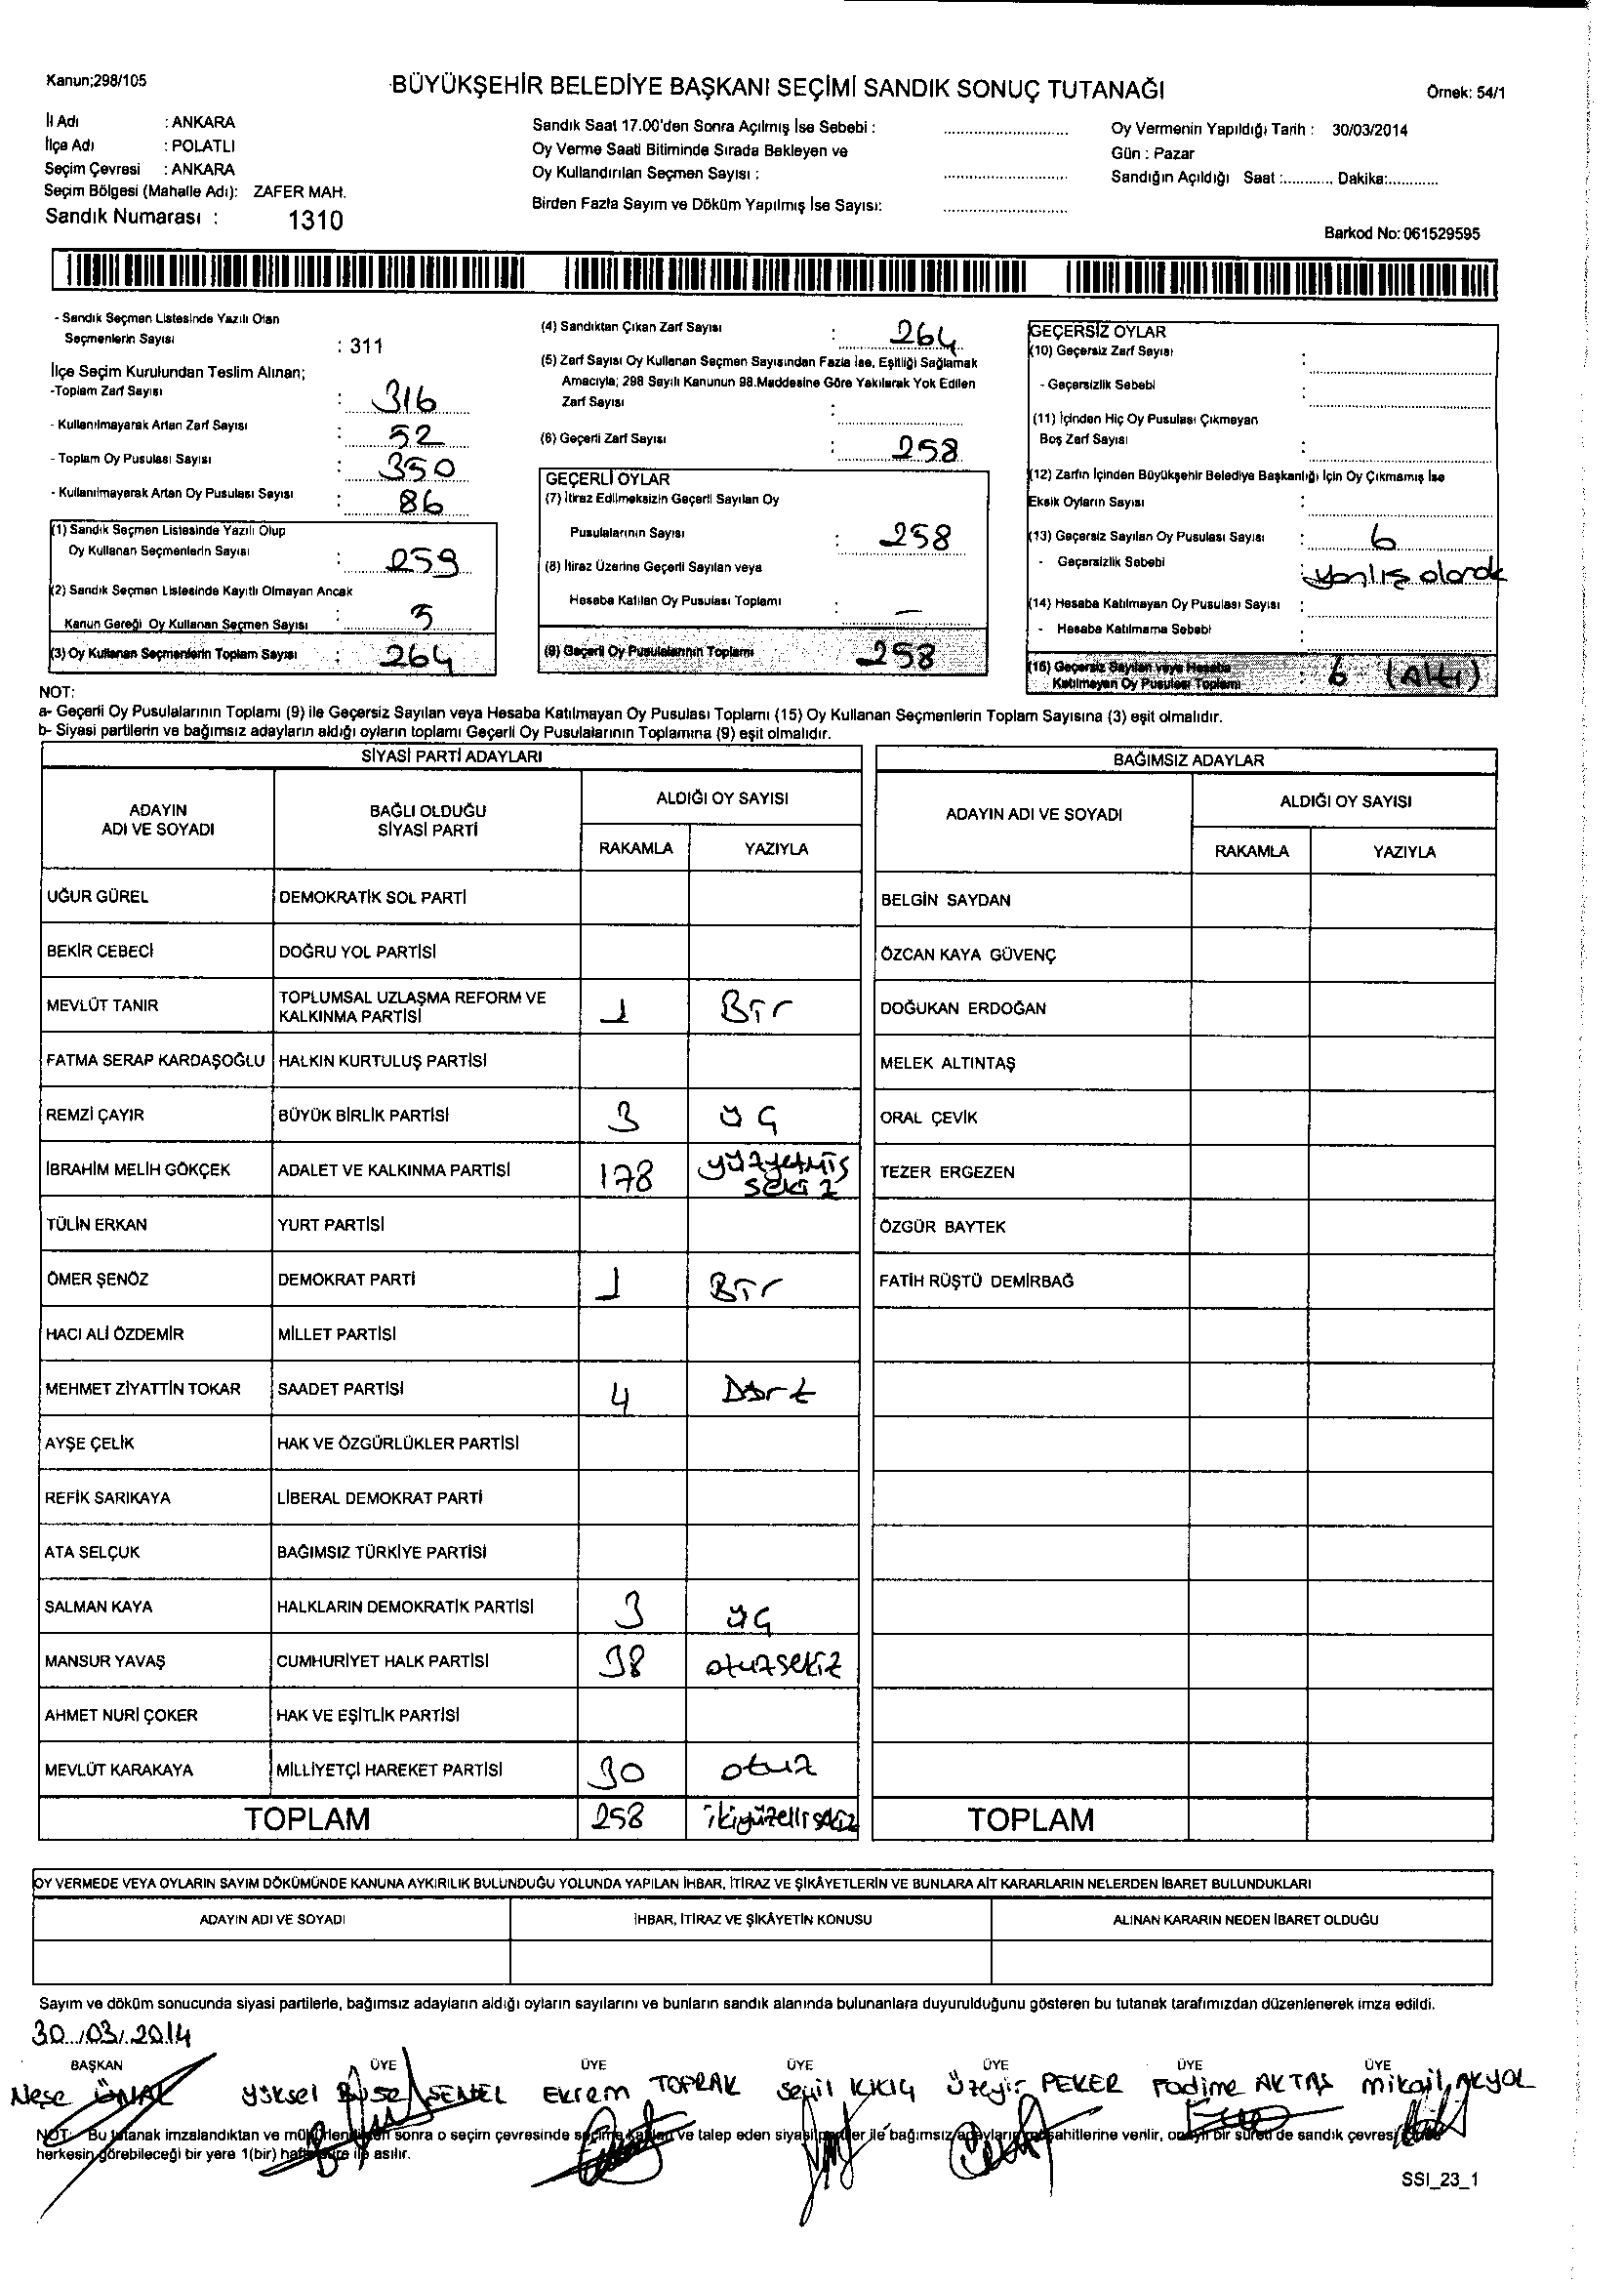 Kanun;298/105
BÜYÜKŞEHİR BELEDİYE BAŞKANI SEÇİMİ SANDIK SONUÇ TUTANAĞI
Örnek: 54/1
İl Adı : ANKARA
İlçe Adı : POLATLI
Seçim Çevresi : ANKARA
Seçim Bölgesi (Mahalle Adı): ZAFER MAH.
Sandık Numarası : 1310
Sandık Saat 17.00'den Sonra Açılmış İse Sebebi :
Oy Verme Saati Bitiminde Sırada Bekleyen ve
Oy Kullandırılan Seçmen Sayısı :
Birden Fazla Sayım ve Döküm Yapılmış İse Sayısı:
Oy Vermenin Yapıldığı Tarih : 30/03/2014
Gün : Pazar
Sandığın Açıldığı Saat :........... Dakika:...........
Barkod No: 061529595
- Sandık Seçmen Listesinde Yazılı Olan
Seçmenlerin Sayısı : 311
İlçe Seçim Kurulundan Teslim Alınan;
-Toplam Zarf Sayısı : 316
- Kullanılmayarak Artan Zarf Sayısı : 52
- Toplam Oy Pusulası Sayısı : 350
- Kullanılmayarak Artan Oy Pusulası Sayısı : 86
(1) Sandık Seçmen Listesinde Yazılı Olup
Oy Kullanan Seçmenlerin Sayısı : 259
(2) Sandık Seçmen Listesinde Kayıtlı Olmayan Ancak
Kanun Gereği Oy Kullanan Seçmen Sayısı : 5
(3) Oy Kullanan Seçmenlerin Toplam Sayısı : 264
(4) Sandıktan Çıkan Zarf Sayısı : 264
(5) Zarf Sayısı Oy Kullanan Seçmen Sayısından Fazla ise, Eşitliği Sağlamak
Amacıyla; 298 Sayılı Kanunun 98.Maddesine Göre Yakılarak Yok Edilen
Zarf Sayısı :
(6) Geçerli Zarf Sayısı : 258
GEÇERLİ OYLAR
(7) İtiraz Edilmeksizin Geçerli Sayılan Oy
Pusulalarının Sayısı : 258
(8) İtiraz Üzerine Geçerli Sayılan veya
Hesaba Katılan Oy Pusulası Toplamı : —
(9) Geçerli Oy Pusulalarının Toplamı 258
GEÇERSİZ OYLAR
(10) Geçersiz Zarf Sayısı :
- Geçersizlik Sebebi :
(11) İçinden Hiç Oy Pusulası Çıkmayan
Boş Zarf Sayısı :
(12) Zarfın İçinden Büyükşehir Belediye Başkanlığı İçin Oy Çıkmamış İse
Eksik Oyların Sayısı :
(13) Geçersiz Sayılan Oy Pusulası Sayısı : 6
- Geçersizlik Sebebi : yanlış olarak
(14) Hesaba Katılmayan Oy Pusulası Sayısı :
- Hesaba Katılmama Sebebi :
(15) Geçersiz Sayılan veya Hesaba
Katılmayan Oy Pusulası Toplamı : 6 (Altı)
NOT:
a- Geçerli Oy Pusulalarının Toplamı (9) ile Geçersiz Sayılan veya Hesaba Katılmayan Oy Pusulası Toplamı (15) Oy Kullanan Seçmenlerin Toplam Sayısına (3) eşit olmalıdır.
b- Siyasi partilerin ve bağımsız adayların aldığı oyların toplamı Geçerli Oy Pusulalarının Toplamına (9) eşit olmalıdır.
SİYASİ PARTİ ADAYLARI
ADAYIN ADI VE SOYADI
BAĞLI OLDUĞU SİYASİ PARTİ
ALDIĞI OY SAYISI
RAKAMLA YAZIYLA
UĞUR GÜREL DEMOKRATİK SOL PARTİ
BEKİR CEBECİ DOĞRU YOL PARTİSİ
MEVLÜT TANIR TOPLUMSAL UZLAŞMA REFORM VE KALKINMA PARTİSİ 1 Bir
FATMA SERAP KARDAŞOĞLU HALKIN KURTULUŞ PARTİSİ
REMZİ ÇAYIR BÜYÜK BİRLİK PARTİSİ 3 üç
İBRAHİM MELİH GÖKÇEK ADALET VE KALKINMA PARTİSİ 178 yüzyetmiş sekiz
TÜLİN ERKAN YURT PARTİSİ
ÖMER ŞENÖZ DEMOKRAT PARTİ 1 Bir
HACI ALİ ÖZDEMİR MİLLET PARTİSİ
MEHMET ZİYATTİN TOKAR SAADET PARTİSİ 4 Dört
AYŞE ÇELİK HAK VE ÖZGÜRLÜKLER PARTİSİ
REFİK SARIKAYA LİBERAL DEMOKRAT PARTİ
ATA SELÇUK BAĞIMSIZ TÜRKİYE PARTİSİ
SALMAN KAYA HALKLARIN DEMOKRATİK PARTİSİ 3 üç
MANSUR YAVAŞ CUMHURİYET HALK PARTİSİ 38 otuzsekiz
AHMET NURİ ÇOKER HAK VE EŞİTLİK PARTİSİ
MEVLÜT KARAKAYA MİLLİYETÇİ HAREKET PARTİSİ 30 otuz
TOPLAM 258 ikiyüzellisekiz
BAĞIMSIZ ADAYLAR
ADAYIN ADI VE SOYADI
ALDIĞI OY SAYISI
RAKAMLA YAZIYLA
BELGİN SAYDAN
ÖZCAN KAYA GÜVENÇ
DOĞUKAN ERDOĞAN
MELEK ALTINTAŞ
ORAL ÇEVİK
TEZER ERGEZEN
ÖZGÜR BAYTEK
FATİH RÜŞTÜ DEMİRBAĞ
TOPLAM
OY VERMEDE VEYA OYLARIN SAYIM DÖKÜMÜNDE KANUNA AYKIRILIK BULUNDUĞU YOLUNDA YAPILAN İHBAR, İTİRAZ VE ŞİKÂYETLERİN VE BUNLARA AİT KARARLARIN NELERDEN İBARET BULUNDUKLARI
ADAYIN ADI VE SOYADI İHBAR, İTİRAZ VE ŞİKÂYETİN KONUSU ALINAN KARARIN NEDEN İBARET OLDUĞU
Sayım ve döküm sonucunda siyasi partilerle, bağımsız adayların aldığı oyların sayılarını ve bunların sandık alanında bulunanlara duyurulduğunu gösteren bu tutanak tarafımızdan düzenlenerek imza edildi.
30/03/2014
BAŞKAN ÜYE ÜYE ÜYE ÜYE ÜYE ÜYE
Neşe ÜNAL Yüksel ŞENEL Ekrem TOPRAK Üzeyir PEKER Fadime AKTAŞ Mikail AKYOL
NOT: Bu tutanak imzalandıktan ve sonra o seçim çevresinde seçime katılan ve talep eden siyasi partiler ile bağımsız adayların müşahitlerine verilir, onaylı bir sureti de sandık çevresi
herkesin görebileceği bir yere 1(bir) hafta süre ile asılır.
SSI_23_1